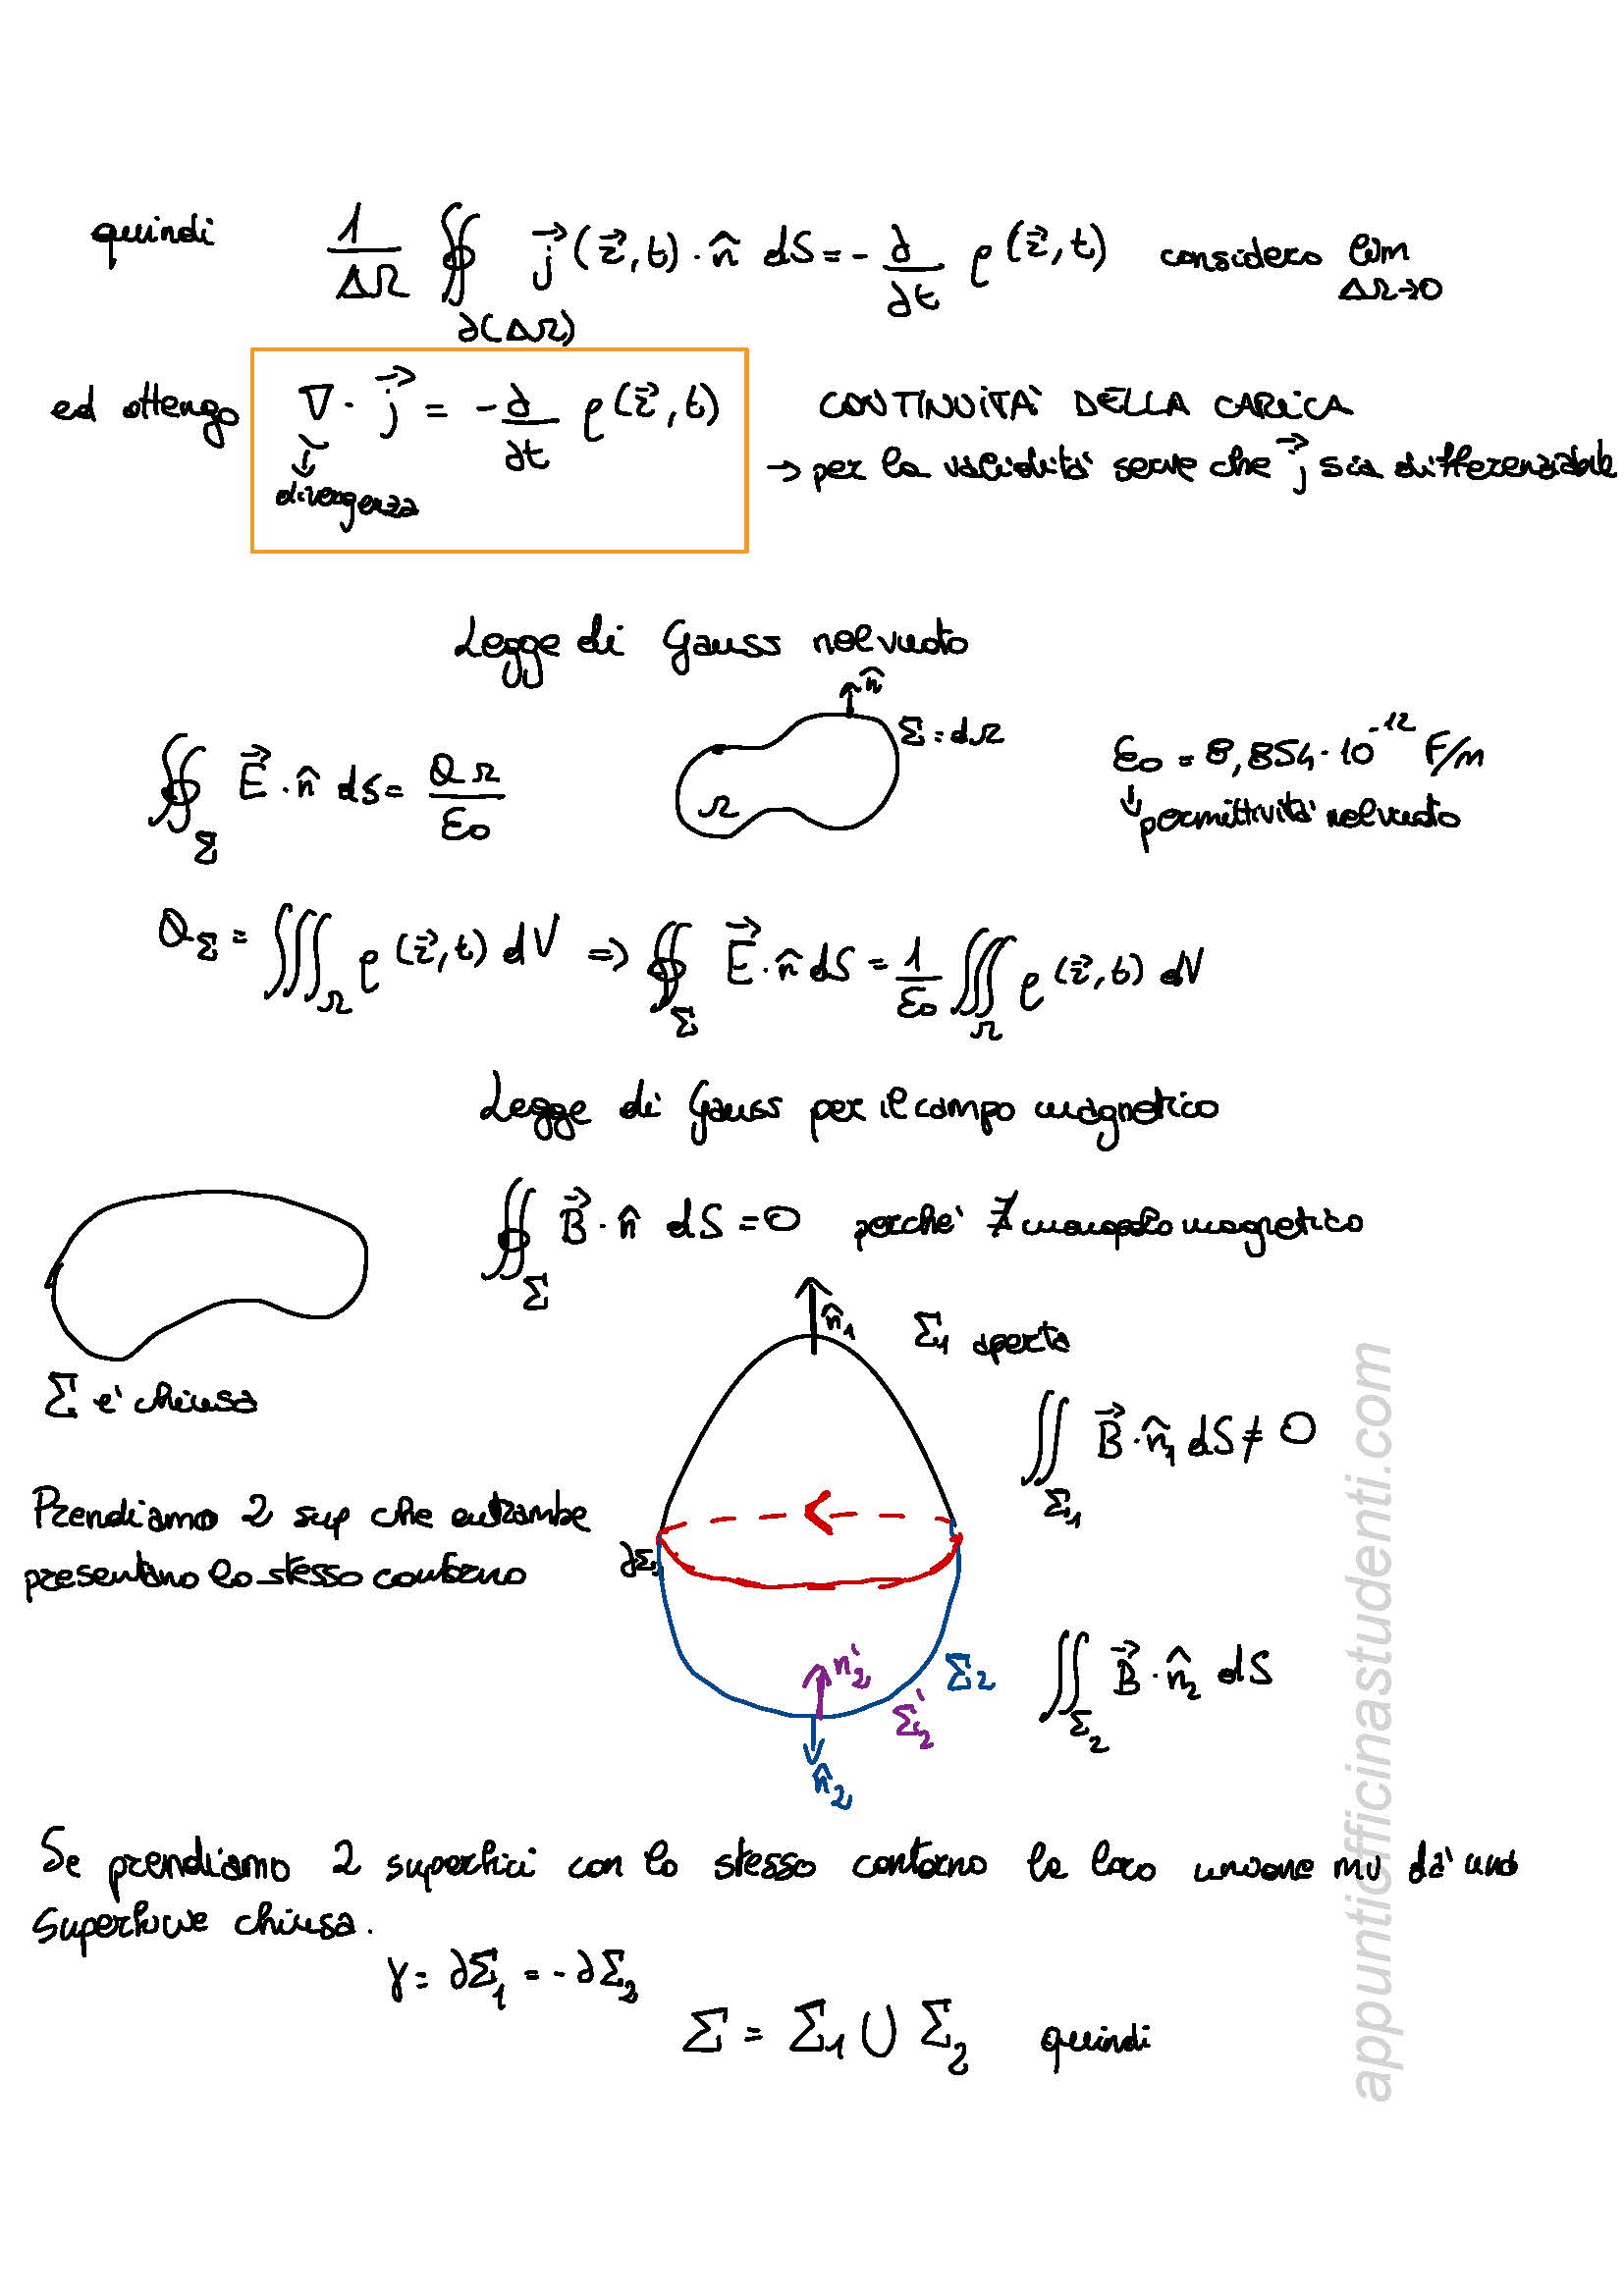 quindi 1/ΔΩ ∯_∂(ΔΩ) j⃗(r⃗,t)·n̂ dS = -∂/∂t ρ(r⃗,t) considero lim ΔΩ→0
ed ottengo ∇·j⃗ = -∂/∂t ρ(r⃗,t) CONTINUITÀ DELLA CARICA
↓ divergenza → per la validità serve che j⃗ sia differenziabile
Legge di Gauss nel vuoto
n̂
∯_Σ E⃗·n̂ dS = Q_Ω/ε₀ Ω Σ=dΩ ε₀ = 8,854·10⁻¹² F/m
↓ permittività nel vuoto
Q_Σ = ∭_Ω ρ(r⃗,t) dV => ∯_Σ E⃗·n̂ dS = 1/ε₀ ∭_Ω ρ(r⃗,t) dV
Legge di Gauss per il campo magnetico
∯_Σ B⃗·n̂ dS = 0 perché ∄ monopolo magnetico
n̂₁ Σ₁ aperta
Σ è chiusa
∬_Σ₁ B⃗·n̂₁ dS ≠ 0
Prendiamo 2 sup che entrambe
presentano lo stesso contorno
∂Σ₁
n₂' Σ₂ ∬_Σ₂ B⃗·n̂₂ dS
Σ₂'
n̂₂
Se prendiamo 2 superfici con lo stesso contorno le loro unione mi dà una
superficie chiusa.
γ = ∂Σ₁ = -∂Σ₂
Σ = Σ₁ ∪ Σ₂ quindi
appuntiofficinastudenti.com